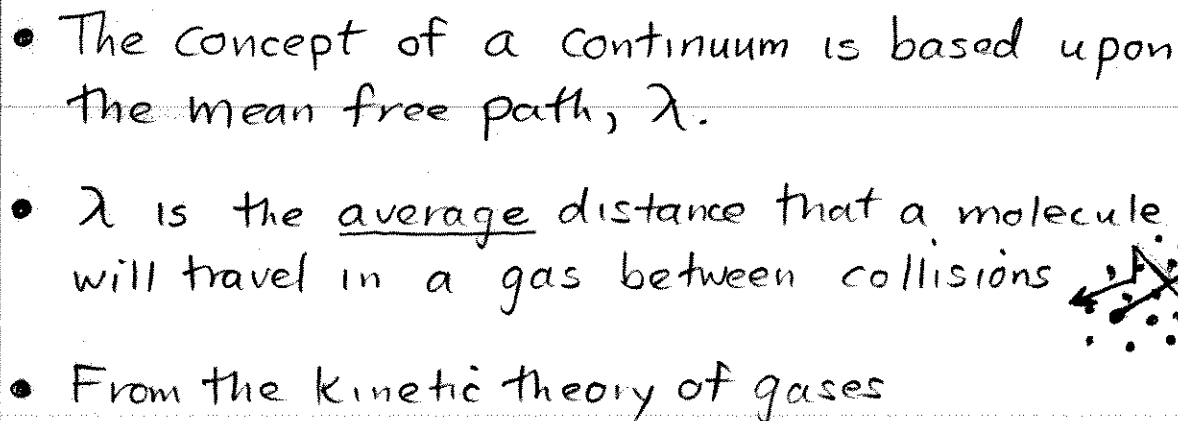 • The concept of a continuum is based upon
the mean free path, λ.
• λ is the average distance that a molecule
will travel in a gas between collisions
• From the kinetic theory of gases